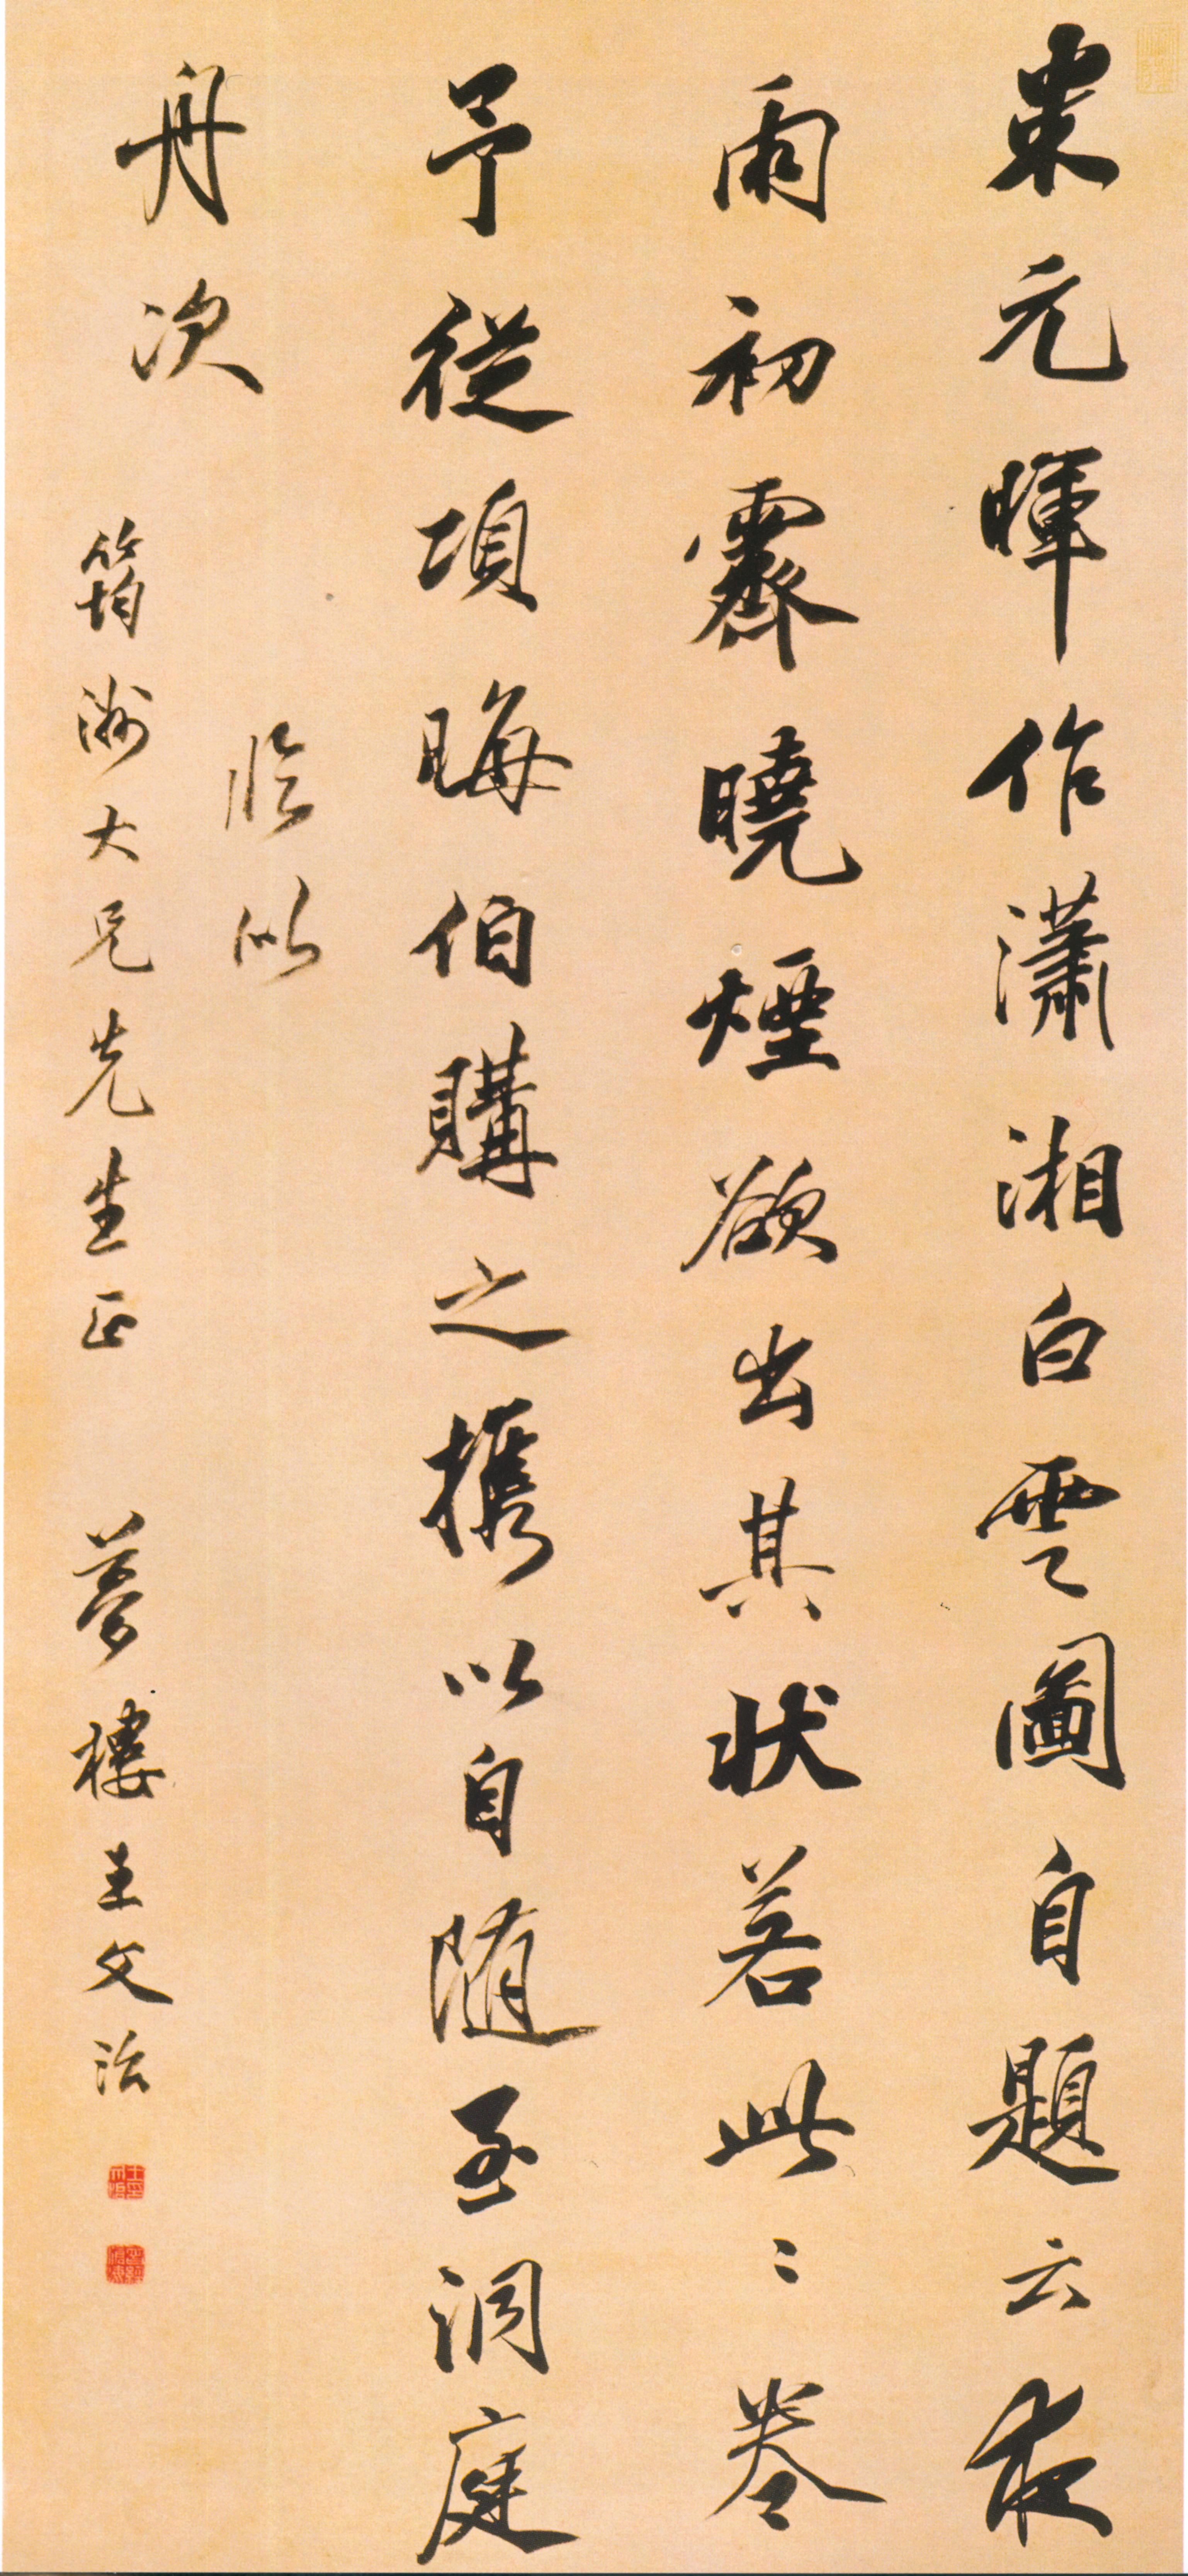 米元暉作瀟湘白雲圖自題云夜
雨初霽曉煙欲出其狀若此〻卷
予從項晦伯購之攜以自隨至洞庭
舟次
臨以
筠洲大兄先生正 夢樓王文治